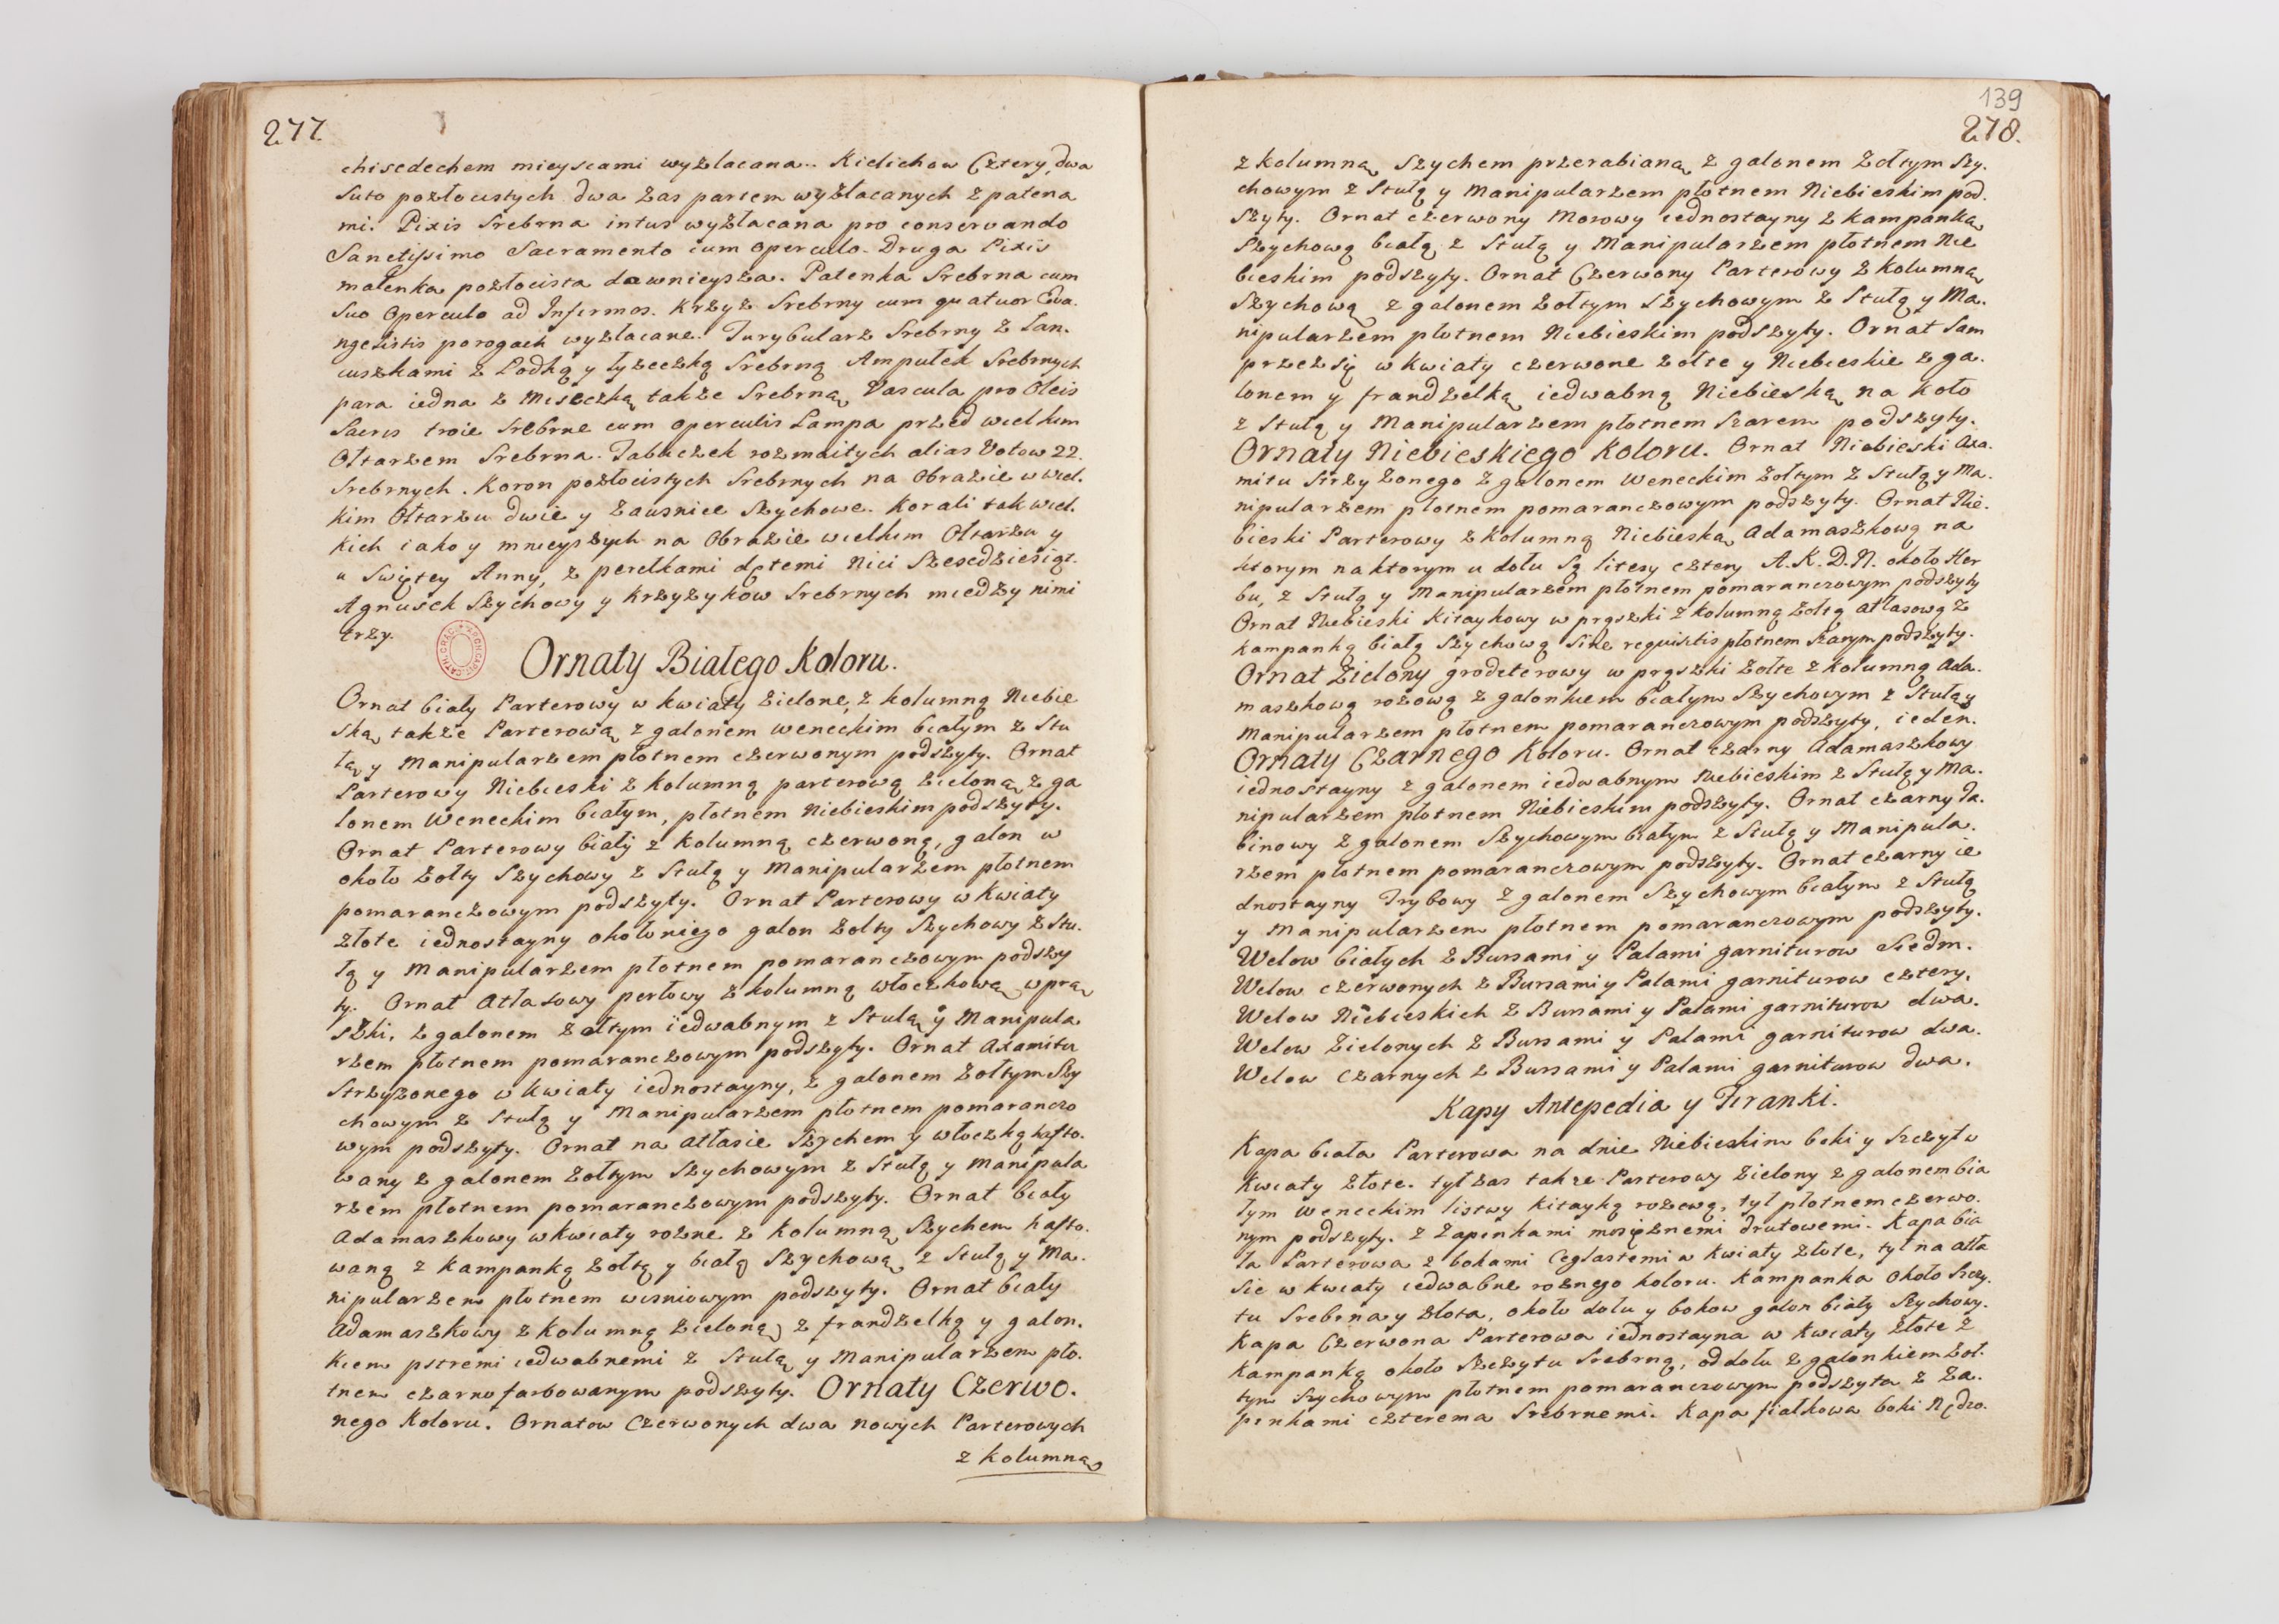 277.
chisedechem mieyscami wyzłacana. Kielichow Cztery, dwa
suto pozłocistych dwa zas partem wyzłacanych z patena
mi. Pixis srebrna intus wyzłacana pro conservando
Sanctissimo Sacramento cum operculo. Druga Pixis
malenka pozłocista dawnieysza. Patenka Srebrna cum
suo Operculo ad Infirmos. Krzyz Srebrny cum quatuor Eva.
ngelistis porogach wyzlacane. Turybularz Srebrny z Łan.
cuszkami z Łodką y łyzeczką Srebrną Ampułek Srebrnych
para iedna z Miseczką takze Srebrną Vascula pro Oleis
Sacris troie Srebrne cum operculis Lampa przed wielkim
Ołtarzem Srebrna. Tabliczek rozmaitych alias Votow 22.
Srebrnych. Koron pozłocistych Srebrnych na Obrazie w wiel.
kim Ołtarzu dwie y Zausnice Szychowe. Korali tak wiel.
kich iako y mnieyszych na Obrazie wielkim Ołtarzu y
u Swiętey Anny, z perełkami dętemi Nici Szescdziesiąt.
Agnusek Szychowy y Krzyzykow Srebrnych miedzy nimi
trzy.
Ornaty Białego Koloru.
Ornat biały Parterowy w kwiaty zielone, z kolumną Niebie
ską takze Parterową z galonem weneckim białym z Stu
łą y Manipularzem płotnem czerwonym podszyty. Ornat
Parterowy Niebieski z kolumną parterową zieloną z ga
lonem Weneckim białym, płotnem Niebieskim podszyty.
Ornat Parterowy biały z kolumną czerwoną, galon w
około zołty Szychowy z Stułą y Manipularzem płotnem
pomaranczowym podszyty. Ornat Parterowy w kwiaty
złote iednostayny około niego galon zołty Szychowy z Stu.
łą y Manipularzem płotnem pomaranczowym podszy
ty. Ornat Atłasowy perłowy z kolumną włoczkową w prą
szki, z galonem zołtym iedwabnym z Stułą y Manipula
rzem płotnem pomaranczowym podszyty. Ornat Axamitu
Strzyzonego w kwiaty iednostayny, z galonem zołtym Szy
chowym z Stułą y Manipularzem płotnem pomaranczo
wym podszyty. Ornat na atłasie Szychem y włoczką hafto.
wany z galonem zołtym Szychowym z Stułą y Manipula
rzem płotnem pomaranczowym podszyty. Ornat biały
Adamaszkowy w kwiaty rozne z kolumną Szychem hafto.
waną z Kampanką zołtą y białą Szychową, z Stułą y Ma.
nipularzem płotnem wisniowym podszyty. Ornat biały
Adamaszkowy z kolumną zieloną z frandzelką y galon.
kiem pstremi iedwabnemi z Stułą y Manipularzem pło.
tnem czarno farbowanym podszyty. Ornaty Czerwo.
nego Koloru. Ornatow Czerwonych dwa nowych Parterowych
z kolumną
139
278.
z kolumną Szychem przerabianą z galonem zołtym Szy.
chowym z Stułą y Manipularzem płotnem Niebieskim pod.
szyty. Ornat czerwony Morowy iednostayny z kampanką
Szychową białą z Stułą y Manipularzem płotnem Nie
bieskim podszyty. Ornat Czerwony Parterowy z kolumną
Szychową z galonem zołtym Szychowym z Stułą y Ma.
nipularzem płotnem Niebieskim podszyty. Ornat sam
przez się w kwiaty czerwone zołte y Niebieskie z ga.
lonem y frandzelką iedwabną Niebieską na koło
z Stułą y Manipularzem płotnem Szarem podszyty.
Ornaty Niebieskiego Koloru. Ornat Niebieski Axa.
mitu Strzyzonego z galonem Weneckim zołtym z Stułą y Ma.
nipularzem płotnem pomaranczowym podszyty. Ornat Nie.
bieski Parterowy z kolumną Niebieską Adamaszkową na
ktorym na ktorym u dołu są litery cztery A.K.D.N. około Her
bu, z Stułą y Manipularzem płotnem pomaranczowym podszyty
Ornat Niebieski Kitaykowy w prąszki z kolumną zołtą atłasową z
kampanką białą Szychową sine requisitis płotnem Szarym podszyty.
Ornat Zielony grodeterowy w prąszki zołte z kolumną Ada.
maszkową rozową z galonkiem białym Szychowym z Stułą y
Manipularzem płotnem pomaranczowym podszyty, ieden.
Ornaty Czarnego Koloru. Ornat czarny Adamaszkowy
iednostayny z galonem iedwabnym Niebieskim z Stułą y Ma.
nipularzem płotnem Niebieskim podszyty. Ornat czarny Ta.
binowy z galonem Szychowym białym z Stułą y Manipula.
rzem płotnem pomaranczowym podszyty. Ornat czarny ie
dnostayny Trybowy z galonem Szychowym białym z Stułą
y Manipularzem płotnem pomaranczowym podszyty.
Welow białych z Bursami y Palami garniturow Siedm.
Welow czerwonych z Bursami y Palami garniturow cztery.
Welow Niebieskich z Bursami y Palami garniturow dwa.
Welow Zielonych z Bursami y Palami garniturow dwa.
Welow Czarnych z Bursami y Palami garniturow dwa.
Kapy Antepedia y Firanki.
Kapa biała Parterowa na dnie Niebieskim boki y szczyt w
kwiaty złote. tył zas takze Parterowy zielony z galonem bia
łym Weneckim listwy kitayką rozową, tył płotnem czerwo.
nym podszyty. z Zapinkami mosięznemi drutowemi. Kapa bia
ła Parterowa z bokami Ceglastemi w kwiaty złote, tył na atła
sie w kwiaty iedwabne roznego koloru. Kampanka około Szczy.
tu Srebrna y złota, około dołu y bokow galon biały Szychowy.
Kapa Czerwona Parterowa iednostayna w kwiaty złote z
kampanką około szczytu Srebrną, od dołu z galonkiem zoł.
tym Szychowym płotnem pomaranczowym podszyta z Za.
pinkami czterema Srebrnemi. Kapa fiałkowa boki